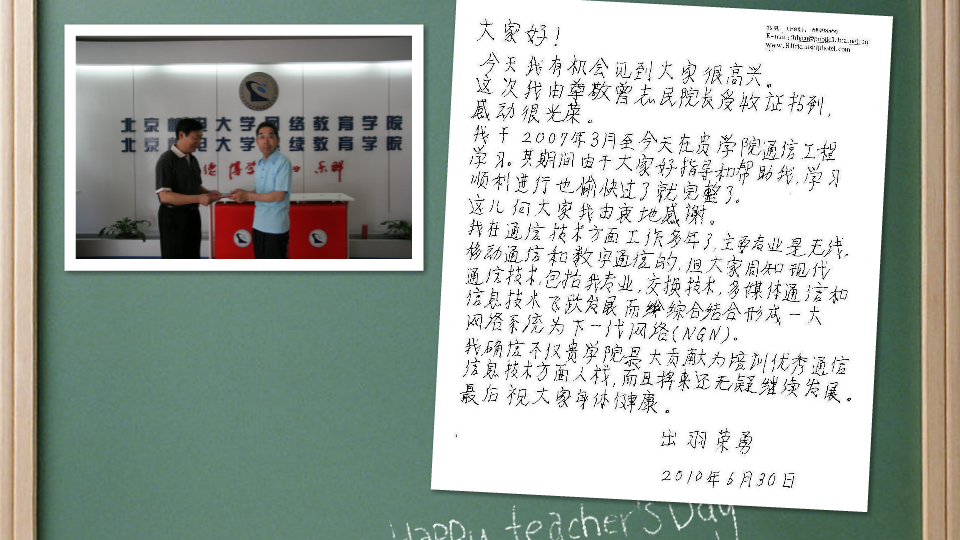 北京邮电大学网络教育学院
北京邮电大学继续教育学院
德 博学 乐群
大家好!
今天我有机会见到大家很高兴。
这次我由尊敬曾志民院长受收证书到,
感动很光荣。
我于2007年3月至今天在贵学院通信工程
学习。其期间由于大家好指导和帮助我,学习
顺利进行也愉快过了就完整了。
这儿向大家我由衷地感谢。
我在通信技术方面工作多年了,主要专业是无线,
移动通信和数字通信的,但大家周知现代
通信技术,包括我专业,交换技术,多媒体通信和
信息技术飞跃发展而综合结合形成一大
网络系统为下一代网络(NGN)。
我确信不仅贵学院最大贡献为培训优秀通信
信息技术方面人材,而且将来还无疑继续发展。
最后祝大家身体健康。
出羽荣勇
2010年6月30日
Happy teacher's Day